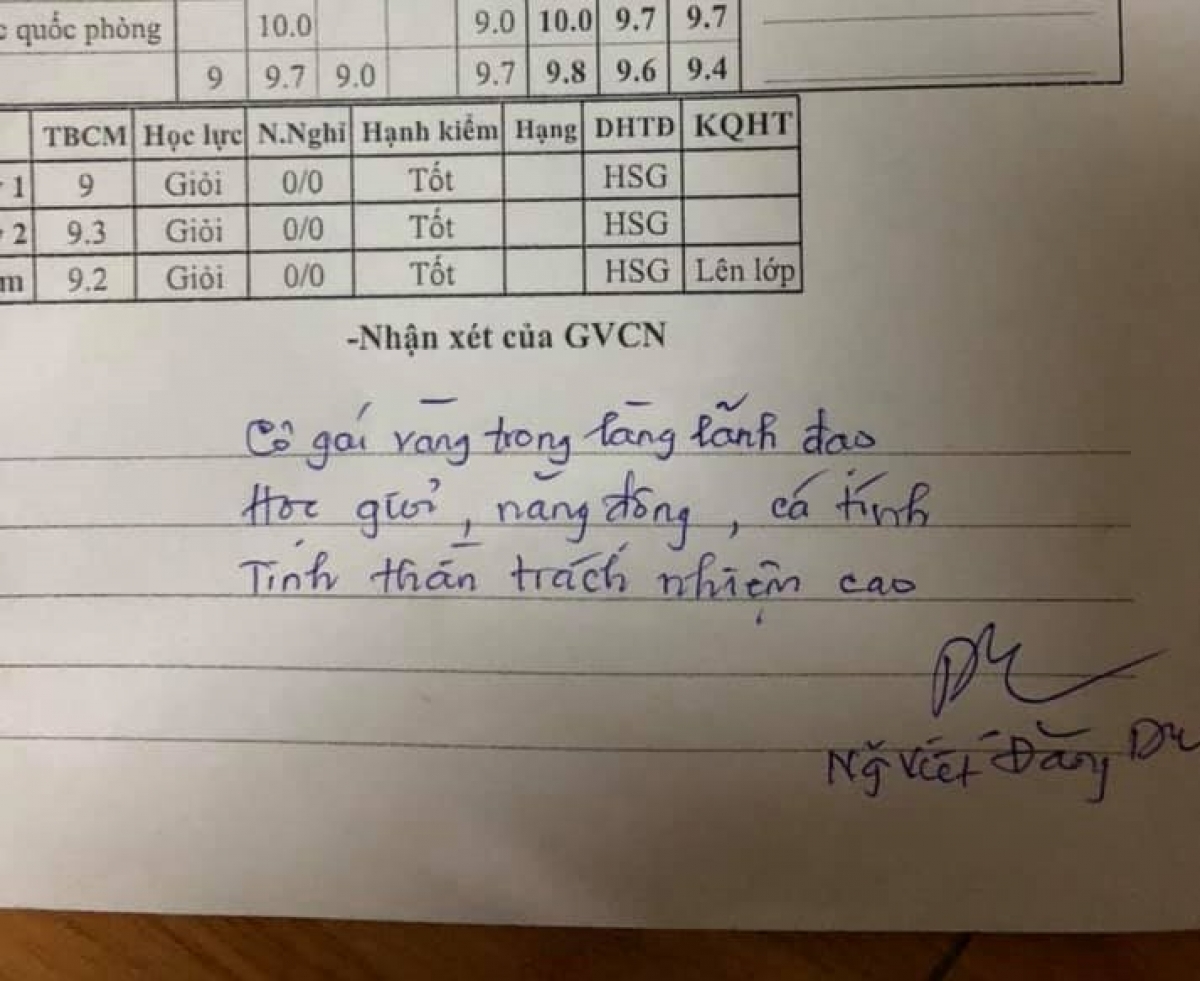 c quốc phòng 10.0 9.0 10.0 9.7 9.7
9 9.7 9.0 9.7 9.8 9.6 9.4
TBCM Học lực N.Nghỉ Hạnh kiểm Hạng DHTĐ KQHT
1 9 Giỏi 0/0 Tốt HSG
2 9.3 Giỏi 0/0 Tốt HSG
m 9.2 Giỏi 0/0 Tốt HSG Lên lớp
-Nhận xét của GVCN
Cô gái vàng trong làng lãnh đạo
Học giỏi, năng động, cá tính
Tinh thần trách nhiệm cao
Ng Viết Đăng Du